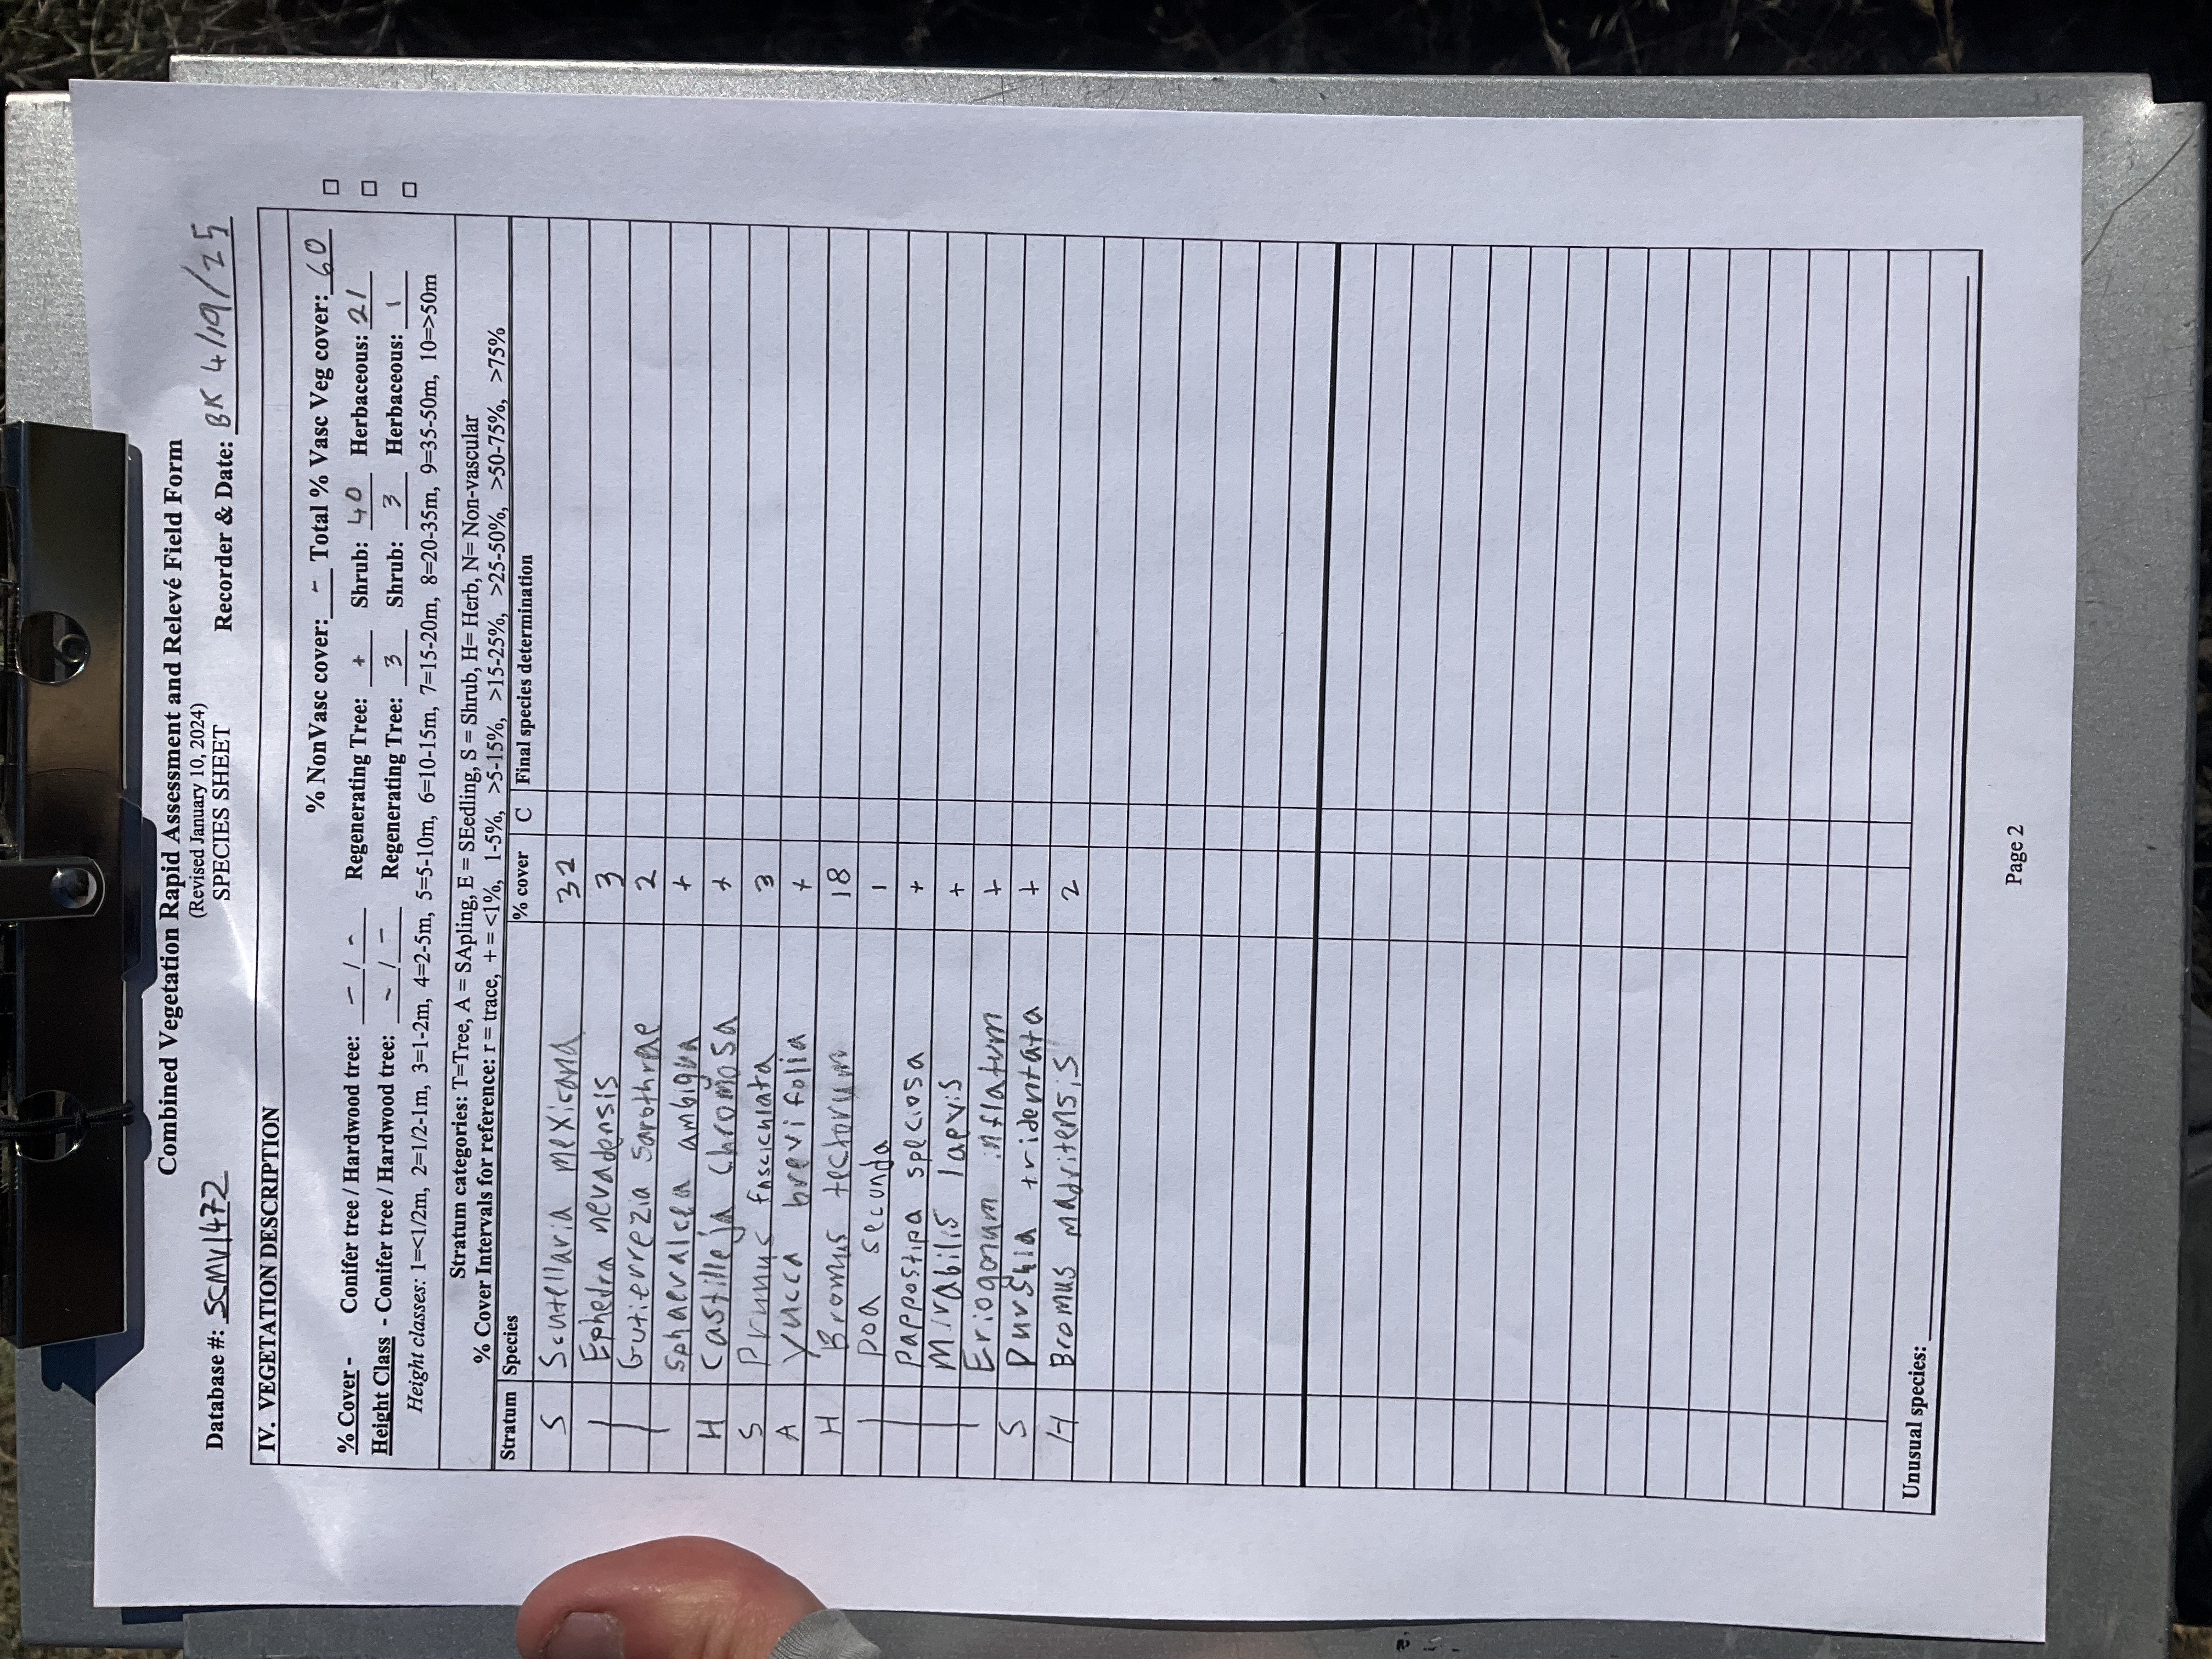 Combined Vegetation Rapid Assessment and Relevé Field Form
(Revised January 10, 2024)
SPECIES SHEET
Database #: SCMV1472 Recorder & Date: BK 4/19/25
IV. VEGETATION DESCRIPTION
% NonVasc cover: - Total % Vasc Veg cover: 60
% Cover - Conifer tree / Hardwood tree: - / - Regenerating Tree: + Shrub: 40 Herbaceous: 21
Height Class - Conifer tree / Hardwood tree: - / - Regenerating Tree: 3 Shrub: 3 Herbaceous: 1
Height classes: 1=<1/2m, 2=1/2-1m, 3=1-2m, 4=2-5m, 5=5-10m, 6=10-15m, 7=15-20m, 8=20-35m, 9=35-50m, 10=>50m
Stratum categories: T=Tree, A = SApling, E = SEedling, S = Shrub, H= Herb, N= Non-vascular
% Cover Intervals for reference: r = trace, + = <1%, 1-5%, >5-15%, >15-25%, >25-50%, >50-75%, >75%
Stratum Species % cover C Final species determination
S Scutellaria mexicana 32
| Ephedra nevadensis 3
| Gutierrezia sarothrae 2
Sphaeralcea ambigua +
H Castilleja chromosa +
S Prunus fasciculata 3
A Yucca brevifolia +
H Bromus tectorum 18
| Poa secunda 1
| Pappostipa speciosa +
| Mirabilis laevis +
| Eriogonum inflatum +
S Purshia tridentata +
H Bromus madritensis 2
Unusual species:
Page 2